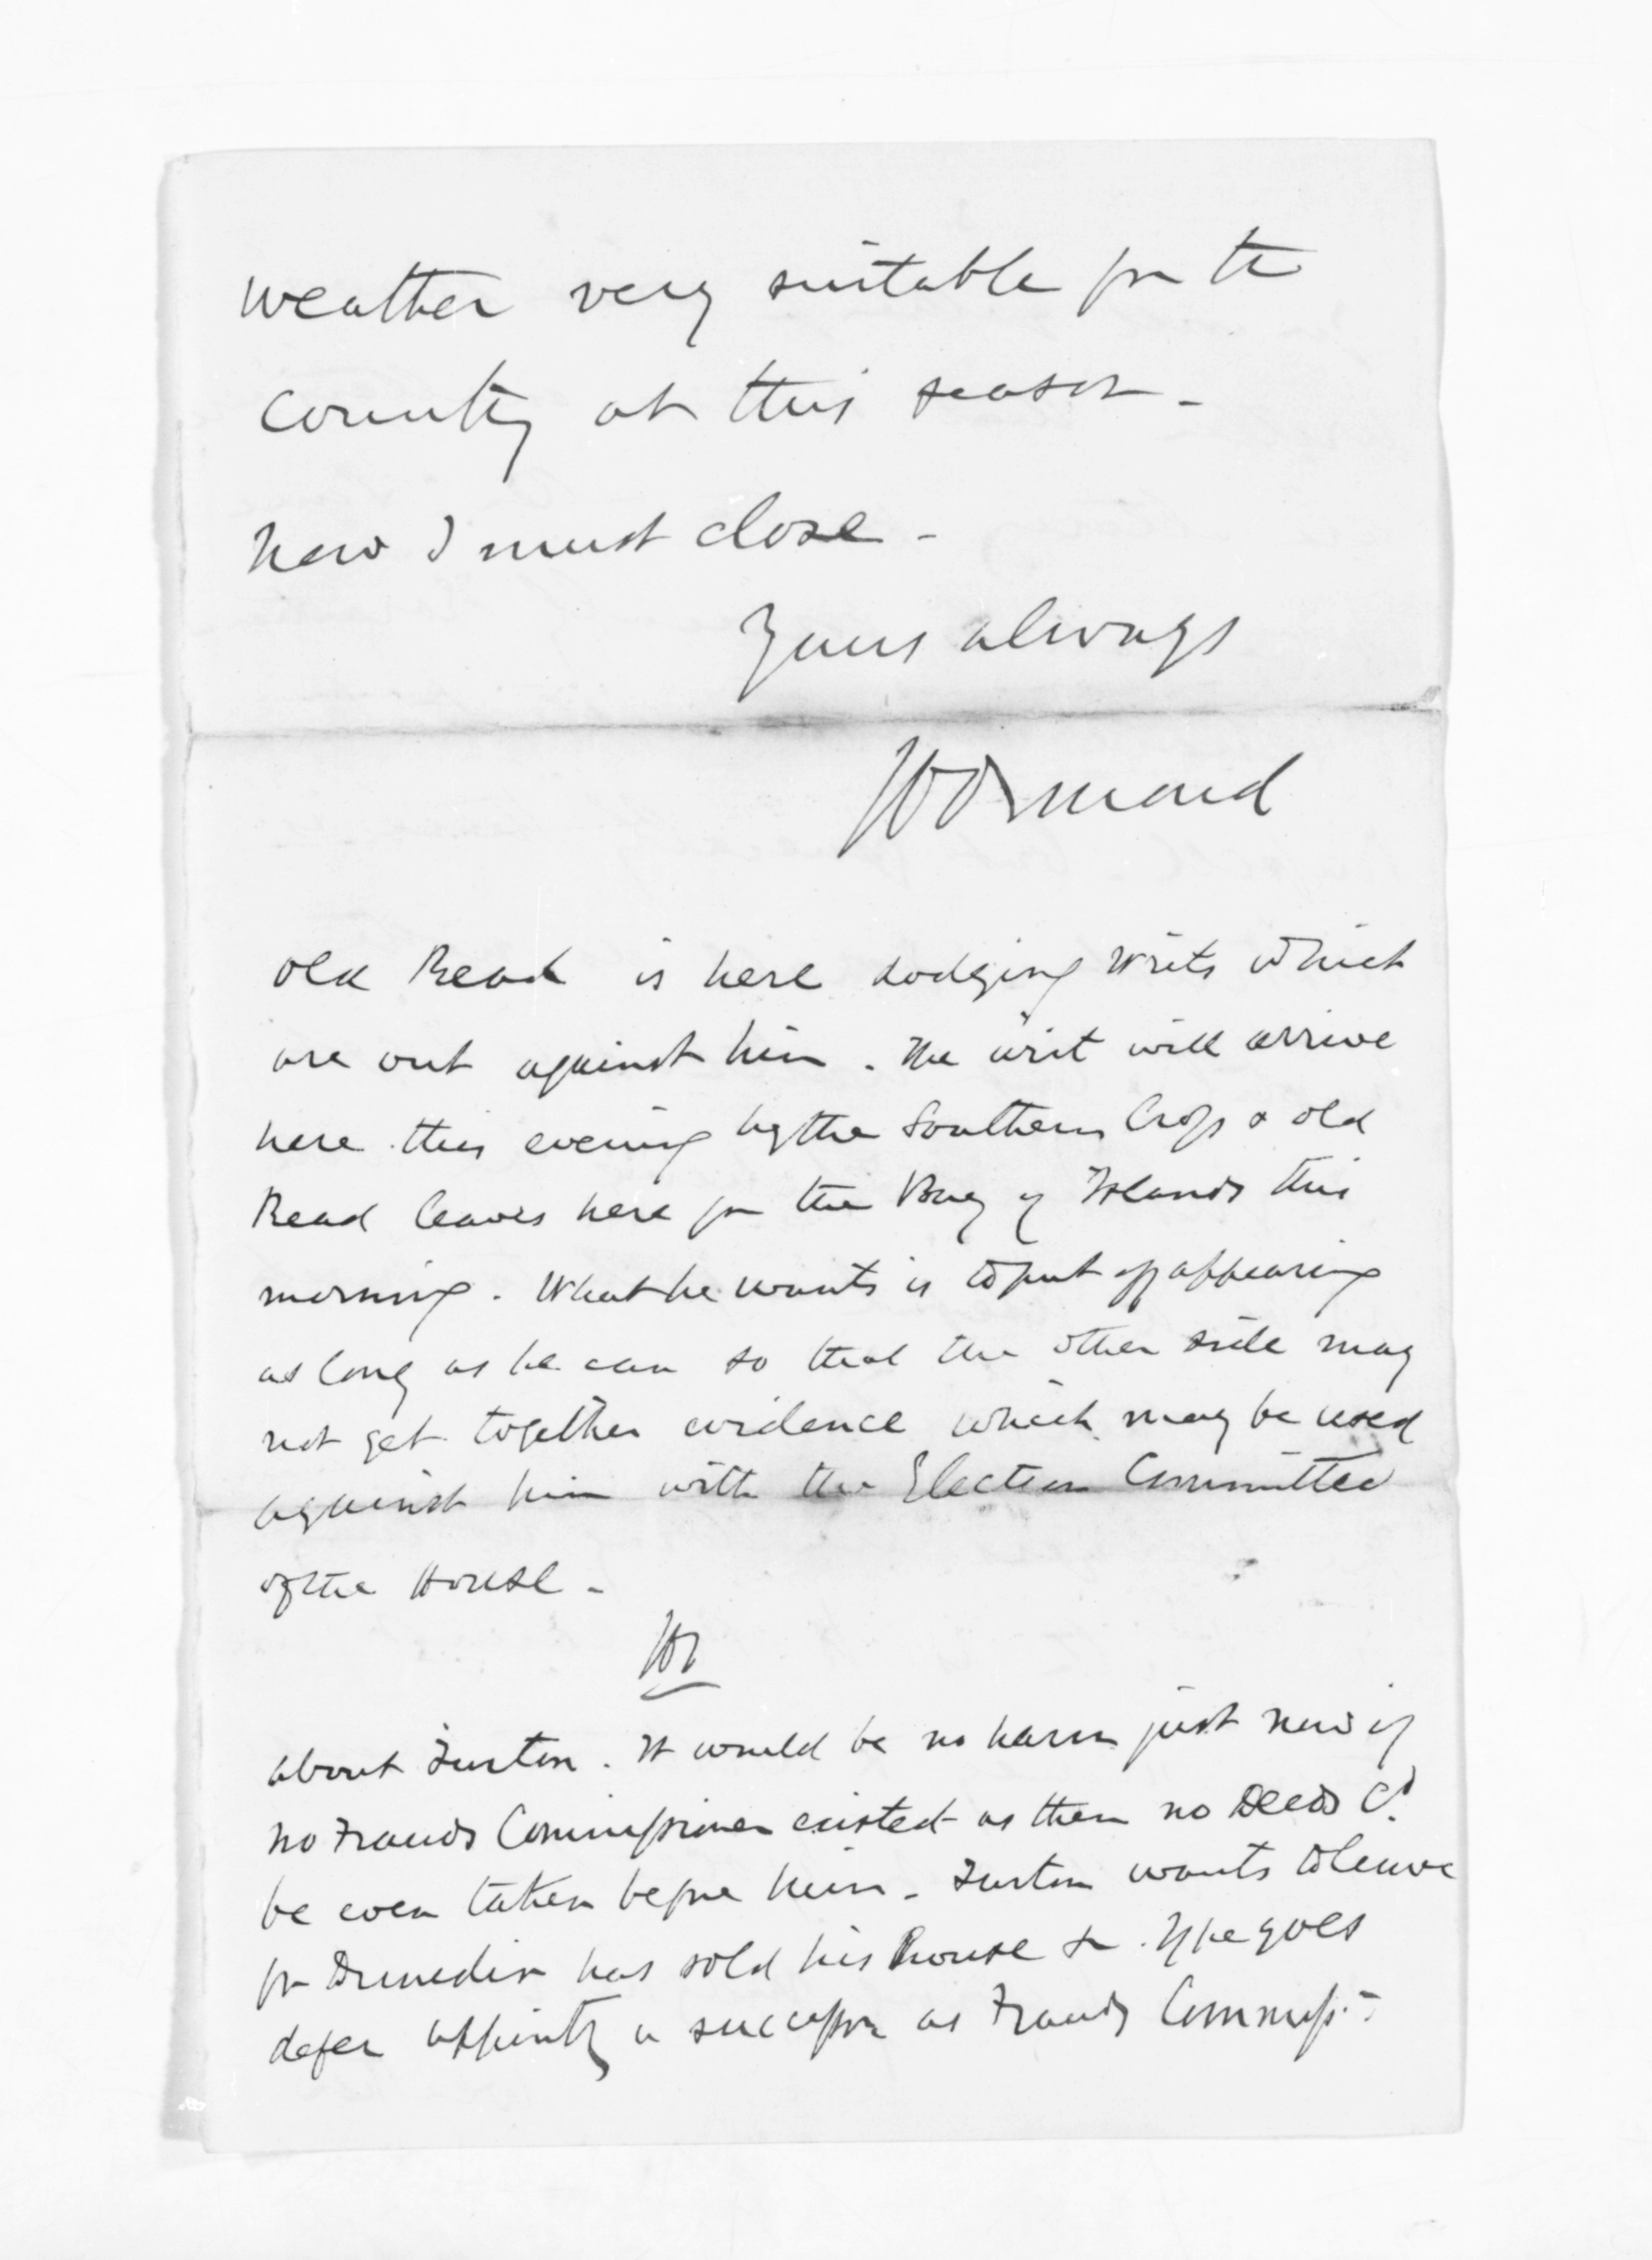 weather very suitable for the
County at this season -
Now I must close -
Yours always
JDOrmond
Old Read is here dodging writs which
are out against him. The writ will arrive
here this evening by the Southern Cross & old
Read leaves here for the Bay of Islands this
morning. What he wants is to put off appearing
as long as he can so that the other side may
not get together evidence which may be used
against him with the Election Committee
of the House -
JDO
about Turton. It would be no harm just now if
no Frauds Commissioner existed as then no Deeds Cd
be even taken before him - Turton wants to leave
for Dunedin has sold his house &c. If he goes
defer appointg a successor as Frauds Commissr -